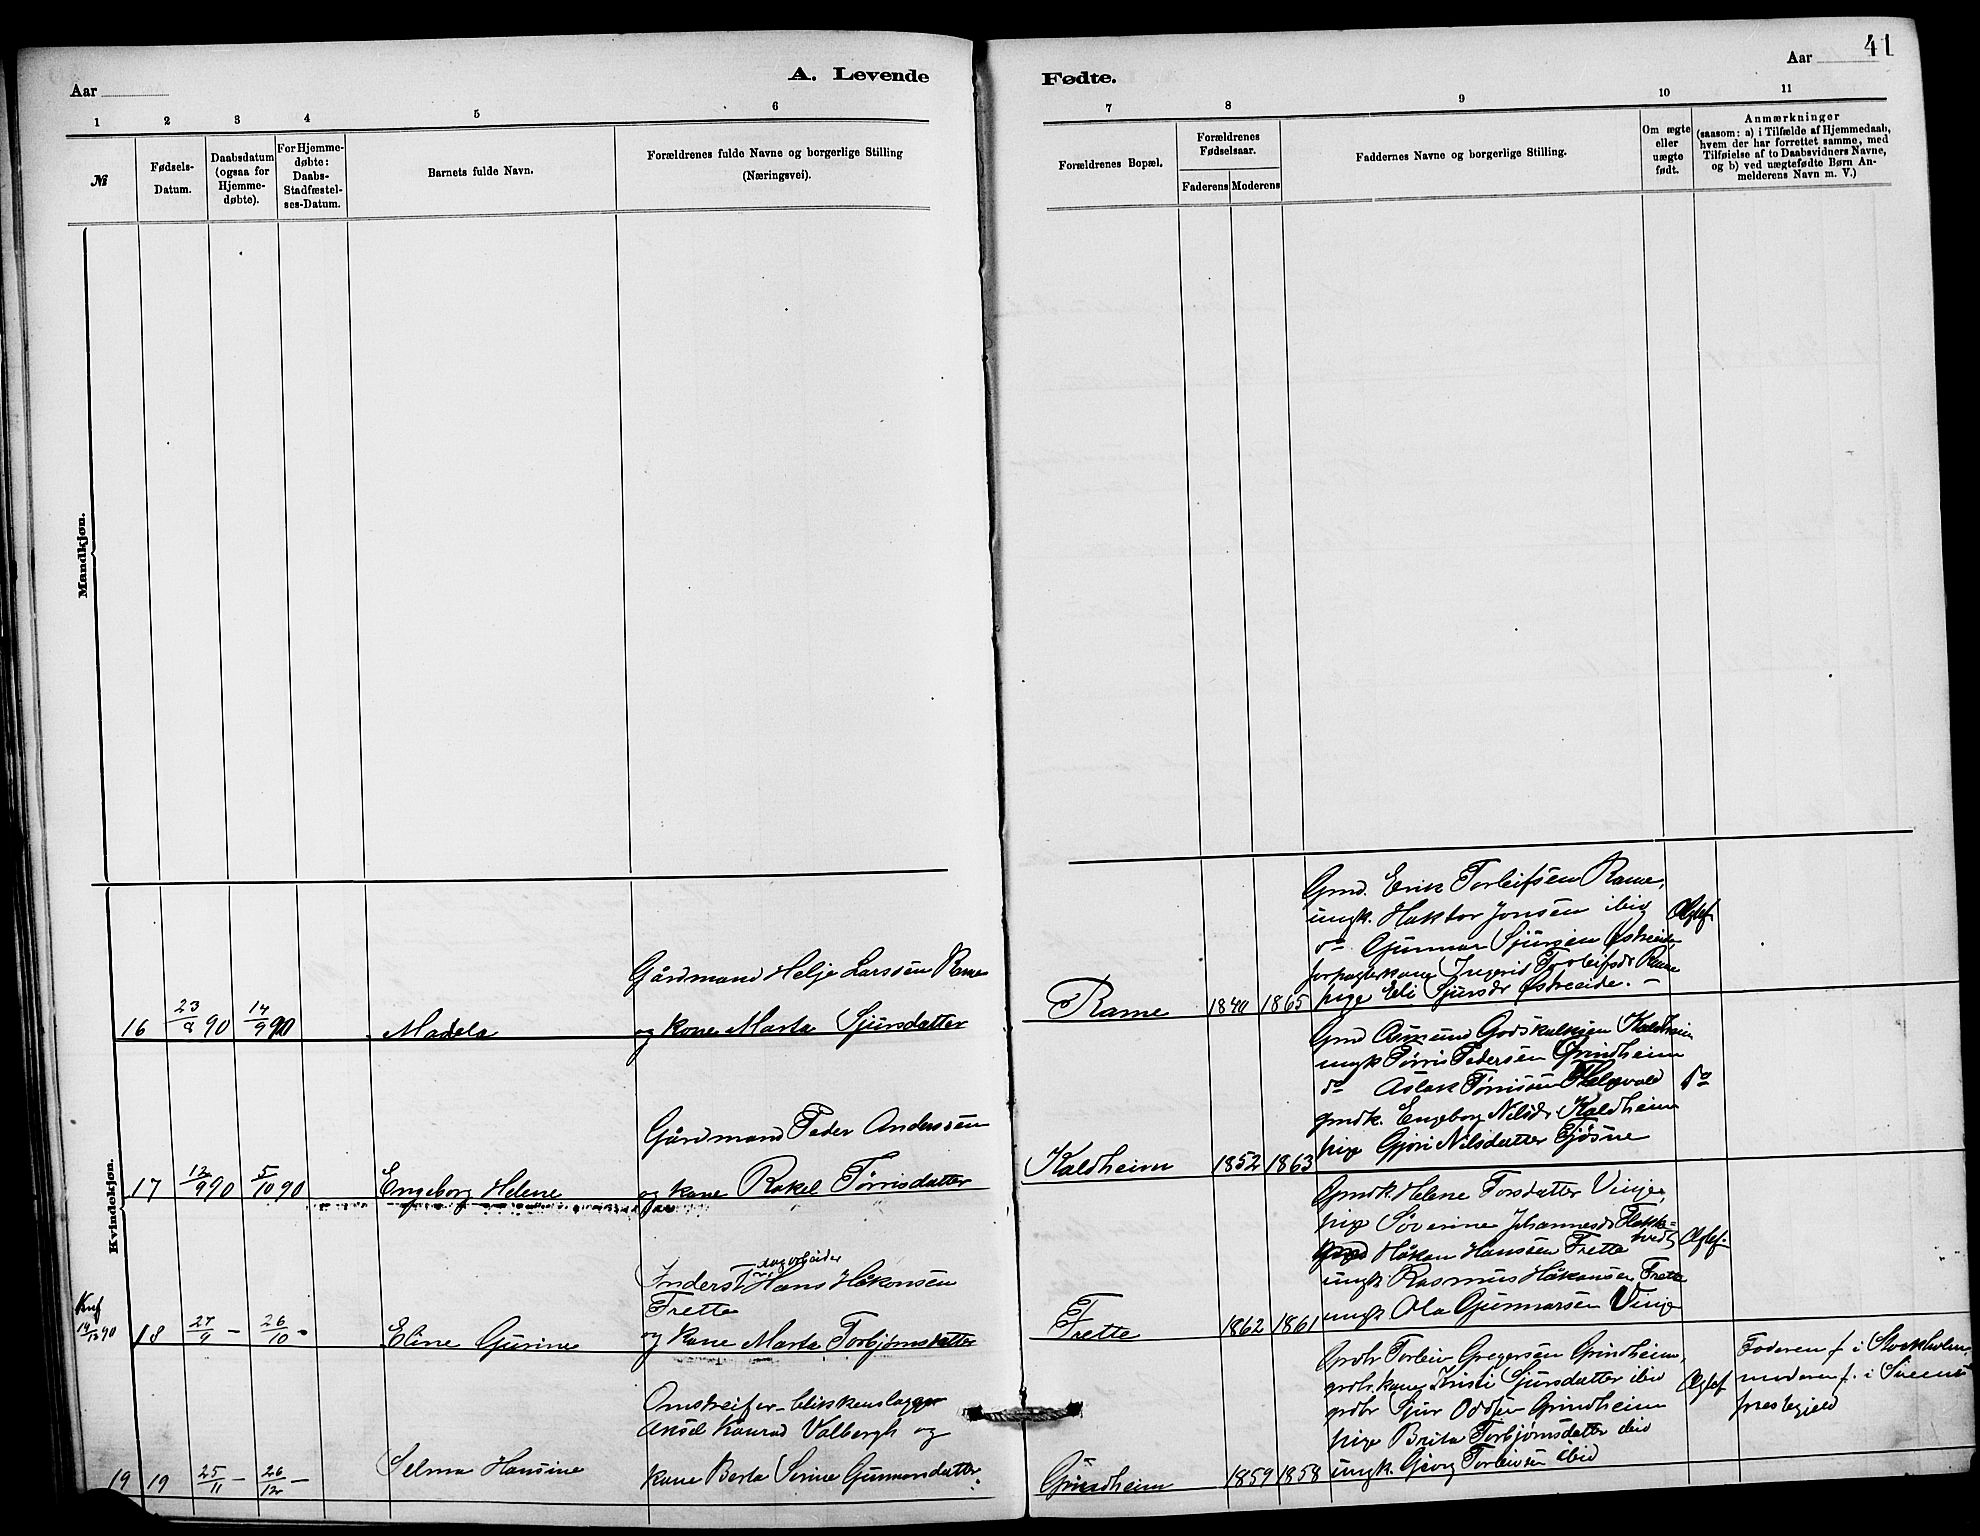 Aar
A. Levende
Fødte.
Aar
41
1 2 3 4 5 6 7 8 9 10 11
№
Fødsels-
Datum.
Daabsdatum
(ogsaa for
Hjemme-
døbte).
For Hjemme-
døbte:
Daabs-
Stadfæstel-
ses-Datum.
Barnets fulde Navn.
Forældrenes fulde Navne og borgerlige Stilling
(Næringsvei).
Forældrenes Bopæl.
Forældrenes
Fødselsaar.
Faderens Moderens
Faddernes Navne og borgerlige Stilling.
Om ægte
eller
uægte
født.
Anmærkninger
(saasom: a) i Tilfælde af Hjemmedaab,
hvem der har forrettet samme, med
Tilføielse af to Daabsvidners Navne,
og b) ved uægtefødte Børn An-
melderens Navn m. V.)
Mandkjøn.
Kvindekjøn.
16 23/8 90 14/9 90 Madela
Gårdmand Helje Larssen Rame
og kone Marta Sjursdatter
Rame 1840 1865
Gmd. Erik Torleifsen Rame,
ungk. Haktor Jonsen ibid
do Gunnar Sjursen Østreide,
forpagterkone Ingerid Torleifsdr Rame
pige Eli Sjursdr Østreeide.
Ægtef.
17 12/9 90 5/10 90 Engeborg Helene
Gårdmand Peder Anderssen
og kone Rakel Tørrisdatter
Kaldheim 1852 1863
Gmd Asmund Godskalksen Kaldheim
ungk Tørris Pedersen Grindheim
do Aslak Tørrissen
gmdk. Engeborg Nilsdr. Kaldheim
pige Gjøri Nilsdatter Gjøsne
do
Knf
18 27/9 – 26/10 – Eline Gurine
Inderst dagarbeider Hans Håkonsen
Frette
og kone Marta Torbjørnsdatter
Frette 1862 1861
Gmdk. Helene Torsdatter Vinje,
pige Søverine Johannesdr
Håkon Hanssen Frette
ungk Rasmus Håkonsen Frette
ungk Ola Gunnarsen Vinje
Ægtef.
19 19 25/11 – 26/12 – Selma Hansine
Omstreifer – blikkenslagger
Aksel Konrad Valbergh og
kone Berta Serine Gunnarsdatter
Grindheim 1859 1858
Grdbr Torleiv Gregersen Grindheim,
grdbr. kone Kristi Sjursdatter ibid
grdbr Sjur Oddsen Grindheim
pige Brita Torbjørnsdatter ibid
ungk. Gjerg Torleivsen ibid
Ægtef
Faderen f. i Stockholm,
moderen f. i
prestegjeld